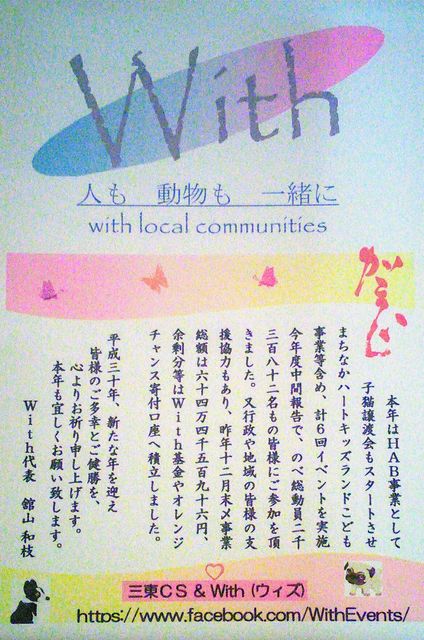 With
人も 動物も 一緒に
with local communities
本年はHAB事業として
子猫譲渡会もスタートさせ
まちなかハートキッズランドこども
事業等含め、計6回イベントを実施
今年度中間報告で、のべ総動員二千
三百八十二名もの皆様にご参加を頂
きました。又行政や地域の皆様の支
援協力もあり、昨年十二月末〆事業
総額は六十四万四千五百九十六円、
余剰分等はWith基金やオレンジ
チャンス寄付口座へ積立しました。
平成三十年、新たな年を迎え
皆様のご多幸とご健勝を、
心よりお祈り申し上げます。
本年も宜しくお願い致します。
With代表 舘山 和枝
三東CS & With (ウィズ)
https://www.facebook.com/WithEvents/